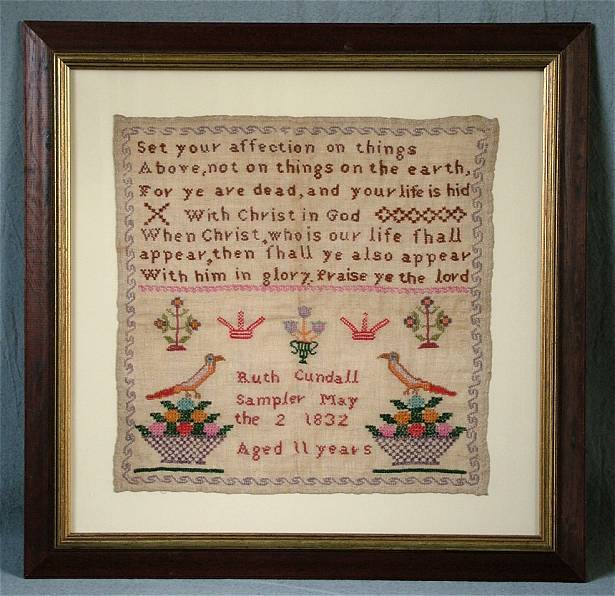 Set your affection on things
Above, not on things on the earth,
For ye are dead, and your life is hid
With Christ in God
When Christ, who is our life ſhall
appear, then ſhall ye also appear
With him in glory Praise ye the lord
Ruth Cundall
Sampler May
the 2 1832
Aged 11 years